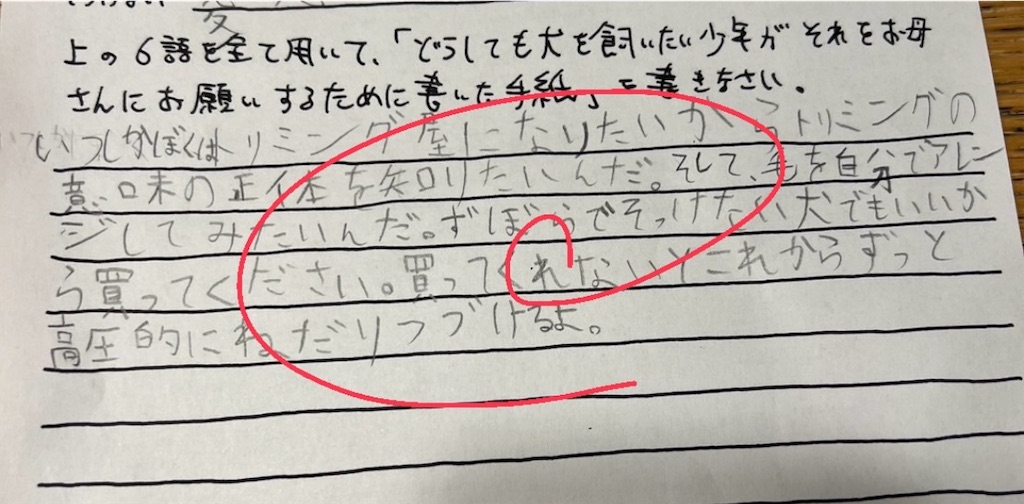 上の6語を全て用いて、「どうしても犬を飼いたい少年がそれをお母
さんにお願いするために書いた手紙」を書きなさい。
いつしかぼくはトリミング屋になりたいからトリミングの
意味の正体を知りたいんだ。そして、毛を自分でアレン
ジしてみたいんだ。ずぼらでそっけたい犬でもいいか
ら買ってください。買ってくれないとこれからずっと
高圧的にねだりつづけるよ。